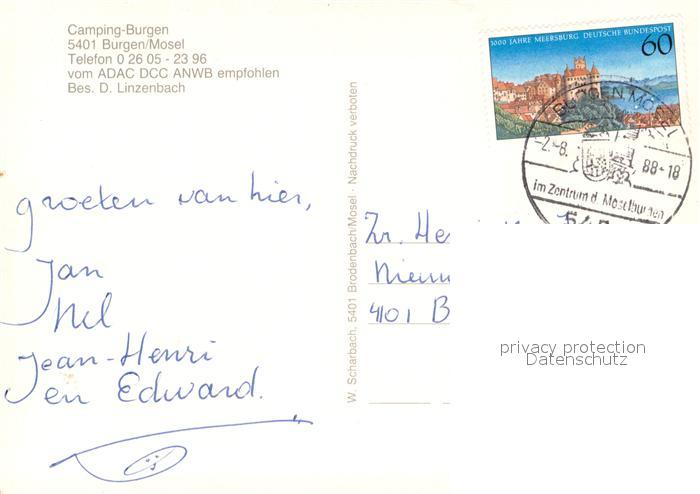 Camping-Burgen
5401 Burgen/Mosel
Telefon 0 26 05 - 23 96
vom ADAC DCC ANWB empfohlen
Bes. D. Linzenbach
1000 JAHRE MEERSBURG DEUTSCHE BUNDESPOST
60
BURGEN, MOSEL
-2.-8. 88-18
im Zentrum d. Moselburgen
groeten van hier,
Jan
Nel
Jean-Henri
en Edward.
W. Scharbach, 5401 Brodenbach/Mosel · Nachdruck verboten
Zr. He
4101 B
privacy protection
Datenschutz